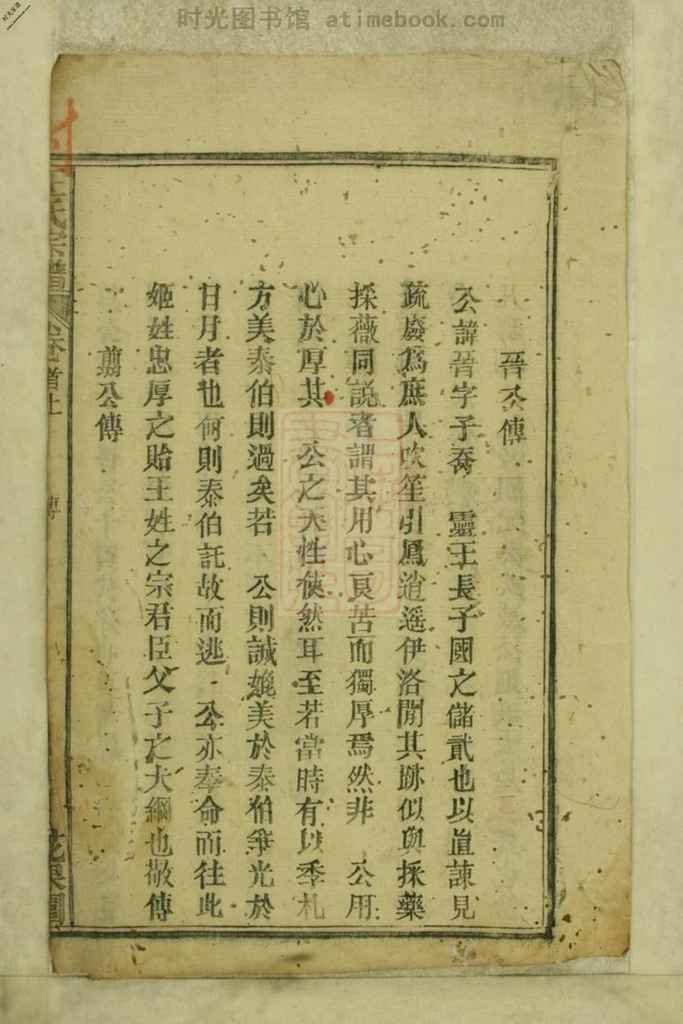 时光图书馆 atimebook.com
晉公傳
公諱晉字子喬 靈王長子國之儲貳也以直諫見
疏廢爲庶人吹笙引鳳逍遙伊洛間其跡似與採藥
採薇同説者謂其用心良苦而獨厚焉然非 公用
心於厚其 公之天性使然耳至若當時有以季札
方美泰伯則過矣若 公則誠媲美於泰伯爭光於
日月者也何則泰伯託故而逃 公亦奉命而往此
姬姓忠厚之貽王姓之宗君臣父子之大綱也敬傳
翦公傳
王氏宗譜
卷首上
傳